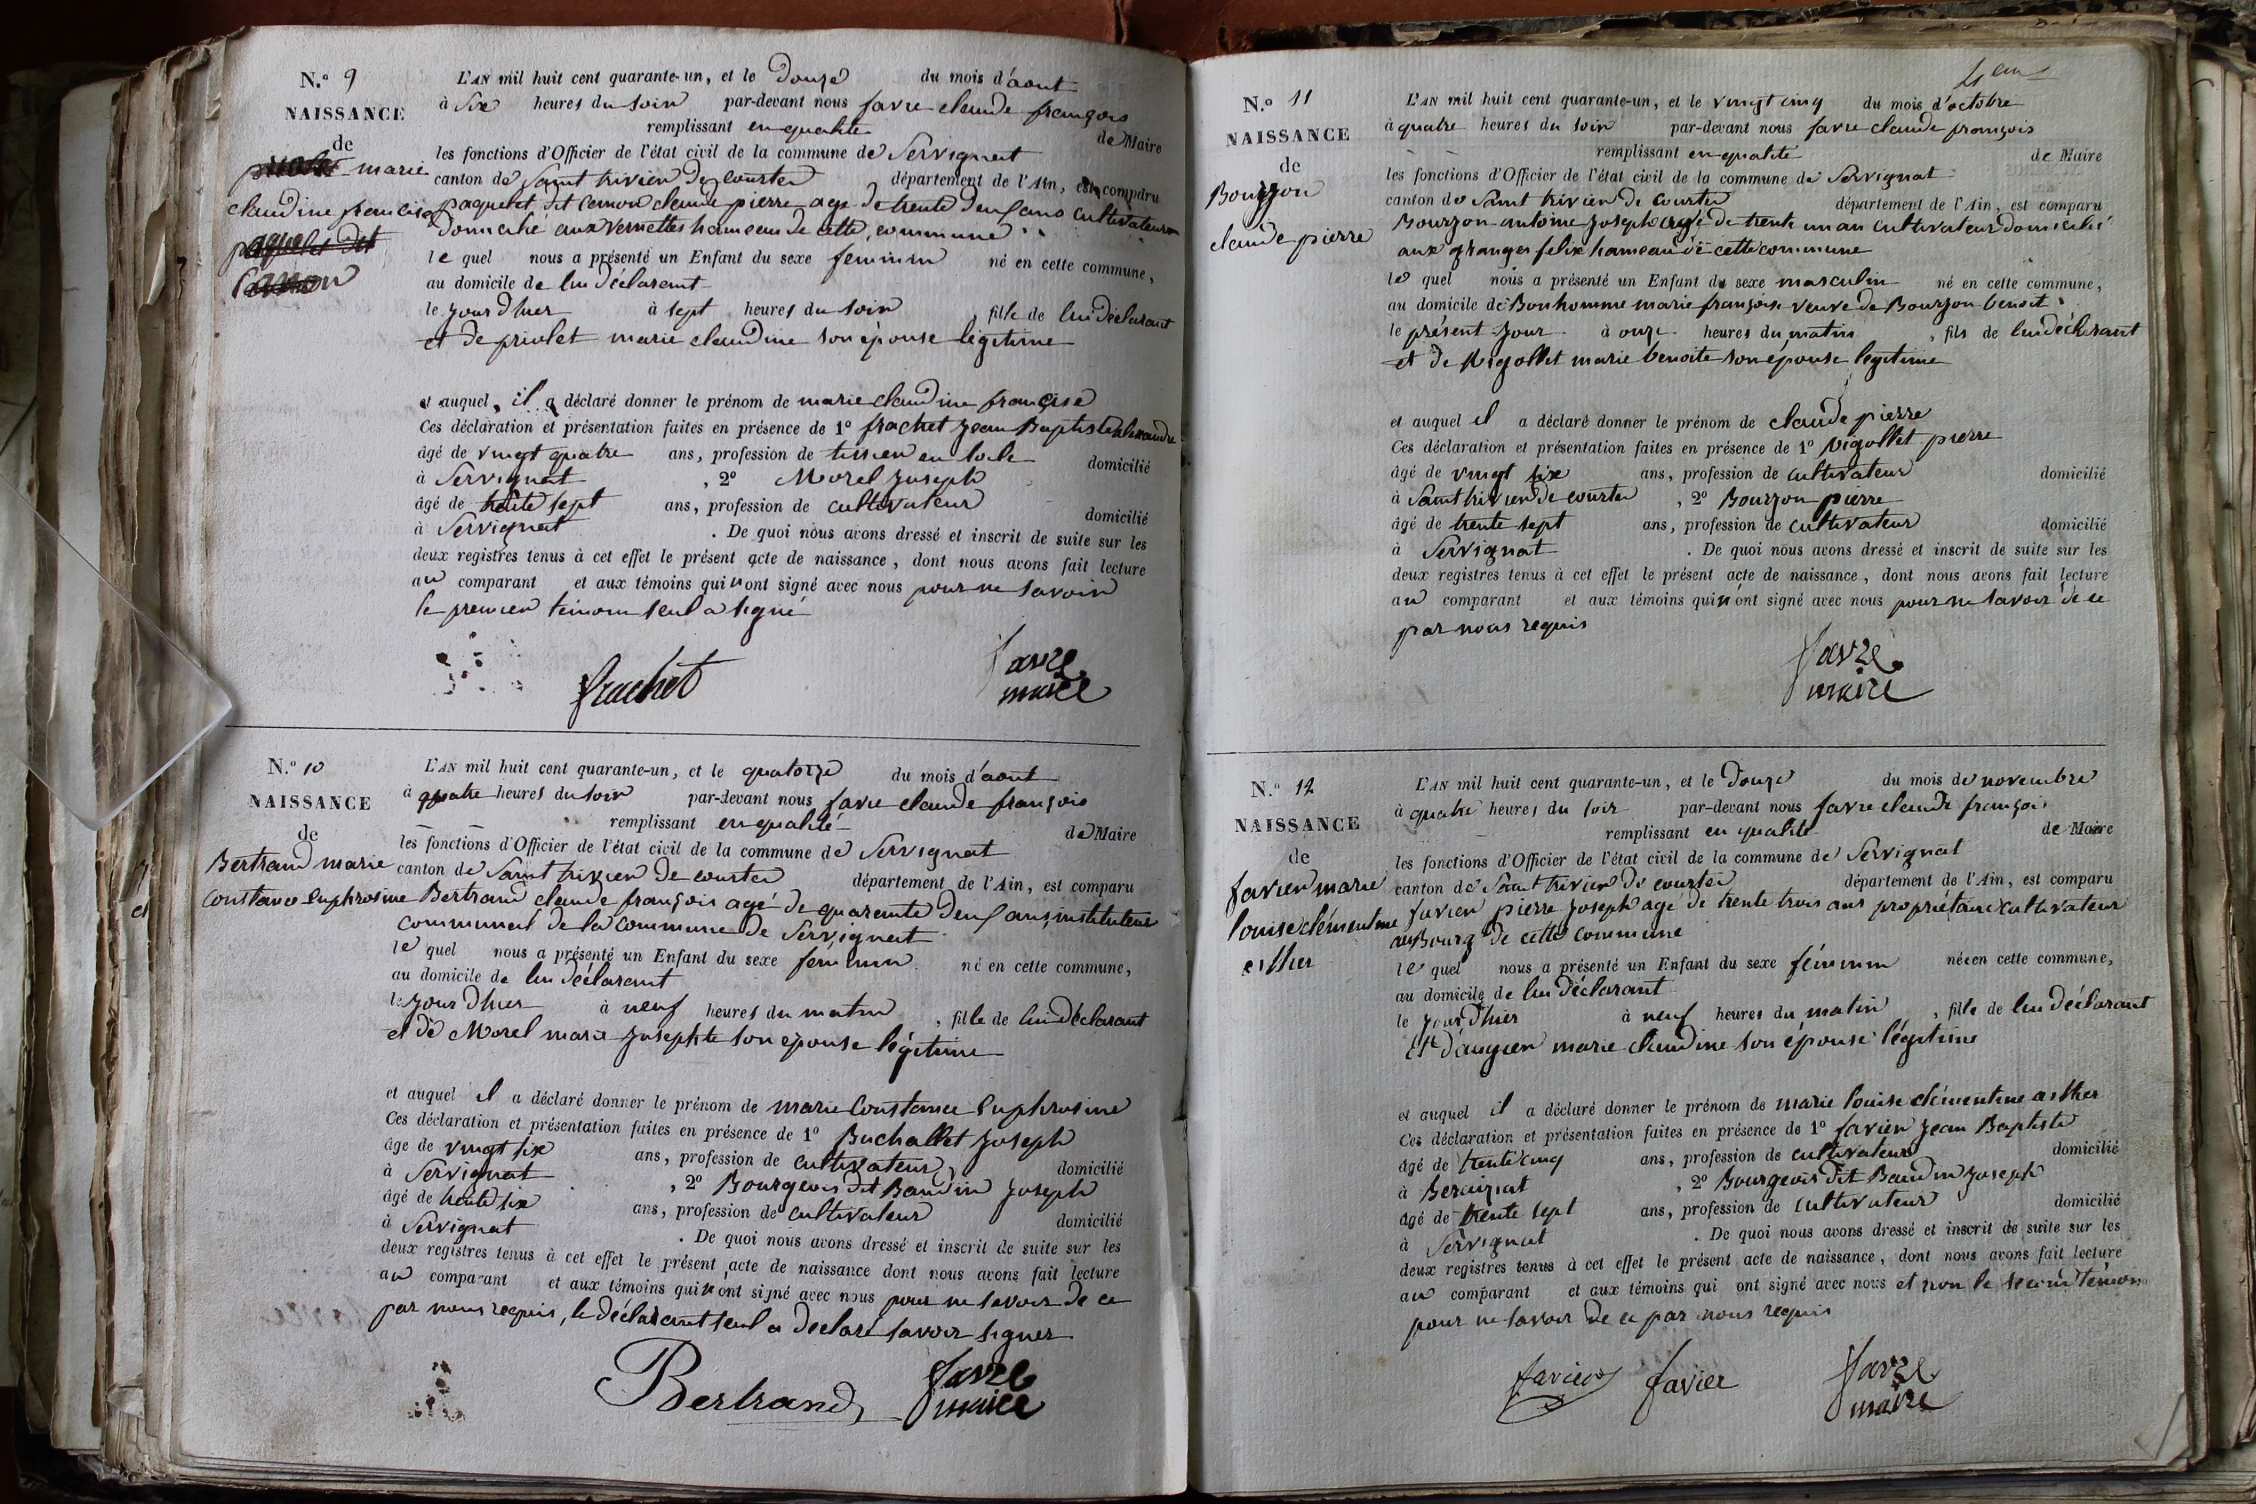 N.° 9
NAISSANCE
de
marie
claudine francise
paquelet dit
Carron
L'AN mil huit cent quarante-un, et le douze du mois d'aout
à Six heures du soir par-devant nous favre claude françois
remplissant en qualité de Maire
les fonctions d'Officier de l'état civil de la commune de Servignat
canton de Saint trivier de courtes département de l'Ain, est comparu
paquelet dit claude pierre age de trente deux ans cultivateur
Domicilié aux vernettes hameau de cette commune
le quel nous a présenté un Enfant du sexe feminin né en cette commune,
au domicile de lui déclarant
le jour d'hier à sept heures du soir, fille de lui déclarant
et de priolet marie claudine son épouse légitime
et auquel il a déclaré donner le prénom de marie claudine francise
Ces déclaration et présentation faites en présence de 1° frachet jean Baptiste
âgé de vingt quatre ans, profession de tissier en toile domicilié
à Servignat, 2° Morel joseph
âgé de trente sept ans, profession de cultivateur domicilié
à Servignat. De quoi nous avons dressé et inscrit de suite sur les
deux registres tenus à cet effet le présent acte de naissance, dont nous avons fait lecture
au comparant et aux témoins qui n ont signé avec nous pour ne savoir
le premier témoin seul a signé
frachet
favre
maire
N.° 10
NAISSANCE
de
Bertrand marie
constance euphrosine
L'AN mil huit cent quarante-un, et le quatorze du mois d'aout
à quatre heures du soir par-devant nous favre claude françois
remplissant en qualité de Maire
les fonctions d'Officier de l'état civil de la commune de Servignat
canton de Saint trivier de courtes département de l'Ain, est comparu
Bertrand claude françois agé de quarante deux ans, instituteur
communal de la commune de Servignat
le quel nous a présenté un Enfant du sexe feminin né en cette commune,
au domicile de lui déclarant
le jour d'hier à neuf heures du matin, fille de lui déclarant
et de Morel marie josephte son épouse légitime
et auquel il a déclaré donner le prénom de marie Constance Euphrosine
Ces déclaration et présentation faites en présence de 1° Buchallet joseph
âgé de vingt six ans, profession de cultivateur domicilié
à Servignat, 2° Bourgeois dit Baudin joseph
âgé de trente six ans, profession de cultivateur domicilié
à Servignat. De quoi nous avons dressé et inscrit de suite sur les
deux registres tenus à cet effet le présent acte de naissance dont nous avons fait lecture
au comparant et aux témoins qui n ont signé avec nous pour ne savoir de ce
par nous requis, le déclarant seul a déclaré savoir signer
Bertrand
favre
maire
N.° 11
NAISSANCE
de
Bourzon
claude pierre
L'AN mil huit cent quarante-un, et le vingt cinq du mois d'octobre
à quatre heures du soir par-devant nous favre claude françois
remplissant en qualité de Maire
les fonctions d'Officier de l'état civil de la commune de Servignat
canton de Saint trivier de courtes département de l'Ain, est comparu
Bourzon antoine joseph agé de trente un an cultivateur domicilié
aux granges felix hameau de cette commune
le quel nous a présenté un Enfant du sexe masculin né en cette commune,
au domicile de Bonhomme marie françoise veuve de Bourzon benoit
le présent jour à onze heures du matin, fils de lui déclarant
et de Rigollet marie benoite son épouse légitime
et auquel il a déclaré donner le prénom de claude pierre
Ces déclaration et présentation faites en présence de 1° Rigollet pierre
âgé de vingt six ans, profession de cultivateur domicilié
à Saint trivier de courtes, 2° Bourzon pierre
âgé de trente sept ans, profession de cultivateur domicilié
à Servignat. De quoi nous avons dressé et inscrit de suite sur les
deux registres tenus à cet effet le présent acte de naissance, dont nous avons fait lecture
au comparant et aux témoins qui n ont signé avec nous pour ne savoir de ce
par nous requis
favre
maire
N.° 12
NAISSANCE
de
favier marie
louise clémentine
esther
L'AN mil huit cent quarante-un, et le douze du mois de novembre
à quatre heures du soir par-devant nous favre claude françois
remplissant en qualité de Maire
les fonctions d'Officier de l'état civil de la commune de Servignat
canton de Saint trivier de courtes département de l'Ain, est comparu
favier pierre joseph agé de trente trois ans propriétaire cultivateur
au Bourg de cette commune
le quel nous a présenté un Enfant du sexe féminin née en cette commune,
au domicile de lui déclarant
le jour d'hier à neuf heures du matin, fille de lui déclarant
et d'augier marie claudine son épouse légitime
et auquel il a déclaré donner le prénom de marie louise clémentine esther
Ces déclaration et présentation faites en présence de 1° favier jean Baptiste
âgé de trente cinq ans, profession de cultivateur domicilié
à Beraiziat, 2° Bourgeois dit Baudin joseph
âgé de trente sept ans, profession de cultivateur domicilié
à Servignat. De quoi nous avons dressé et inscrit de suite sur les
deux registres tenus à cet effet le présent acte de naissance, dont nous avons fait lecture
au comparant et aux témoins qui ont signé avec nous et non le second témoin
pour ne savoir de ce par nous requis
favier
favier
favre
maire